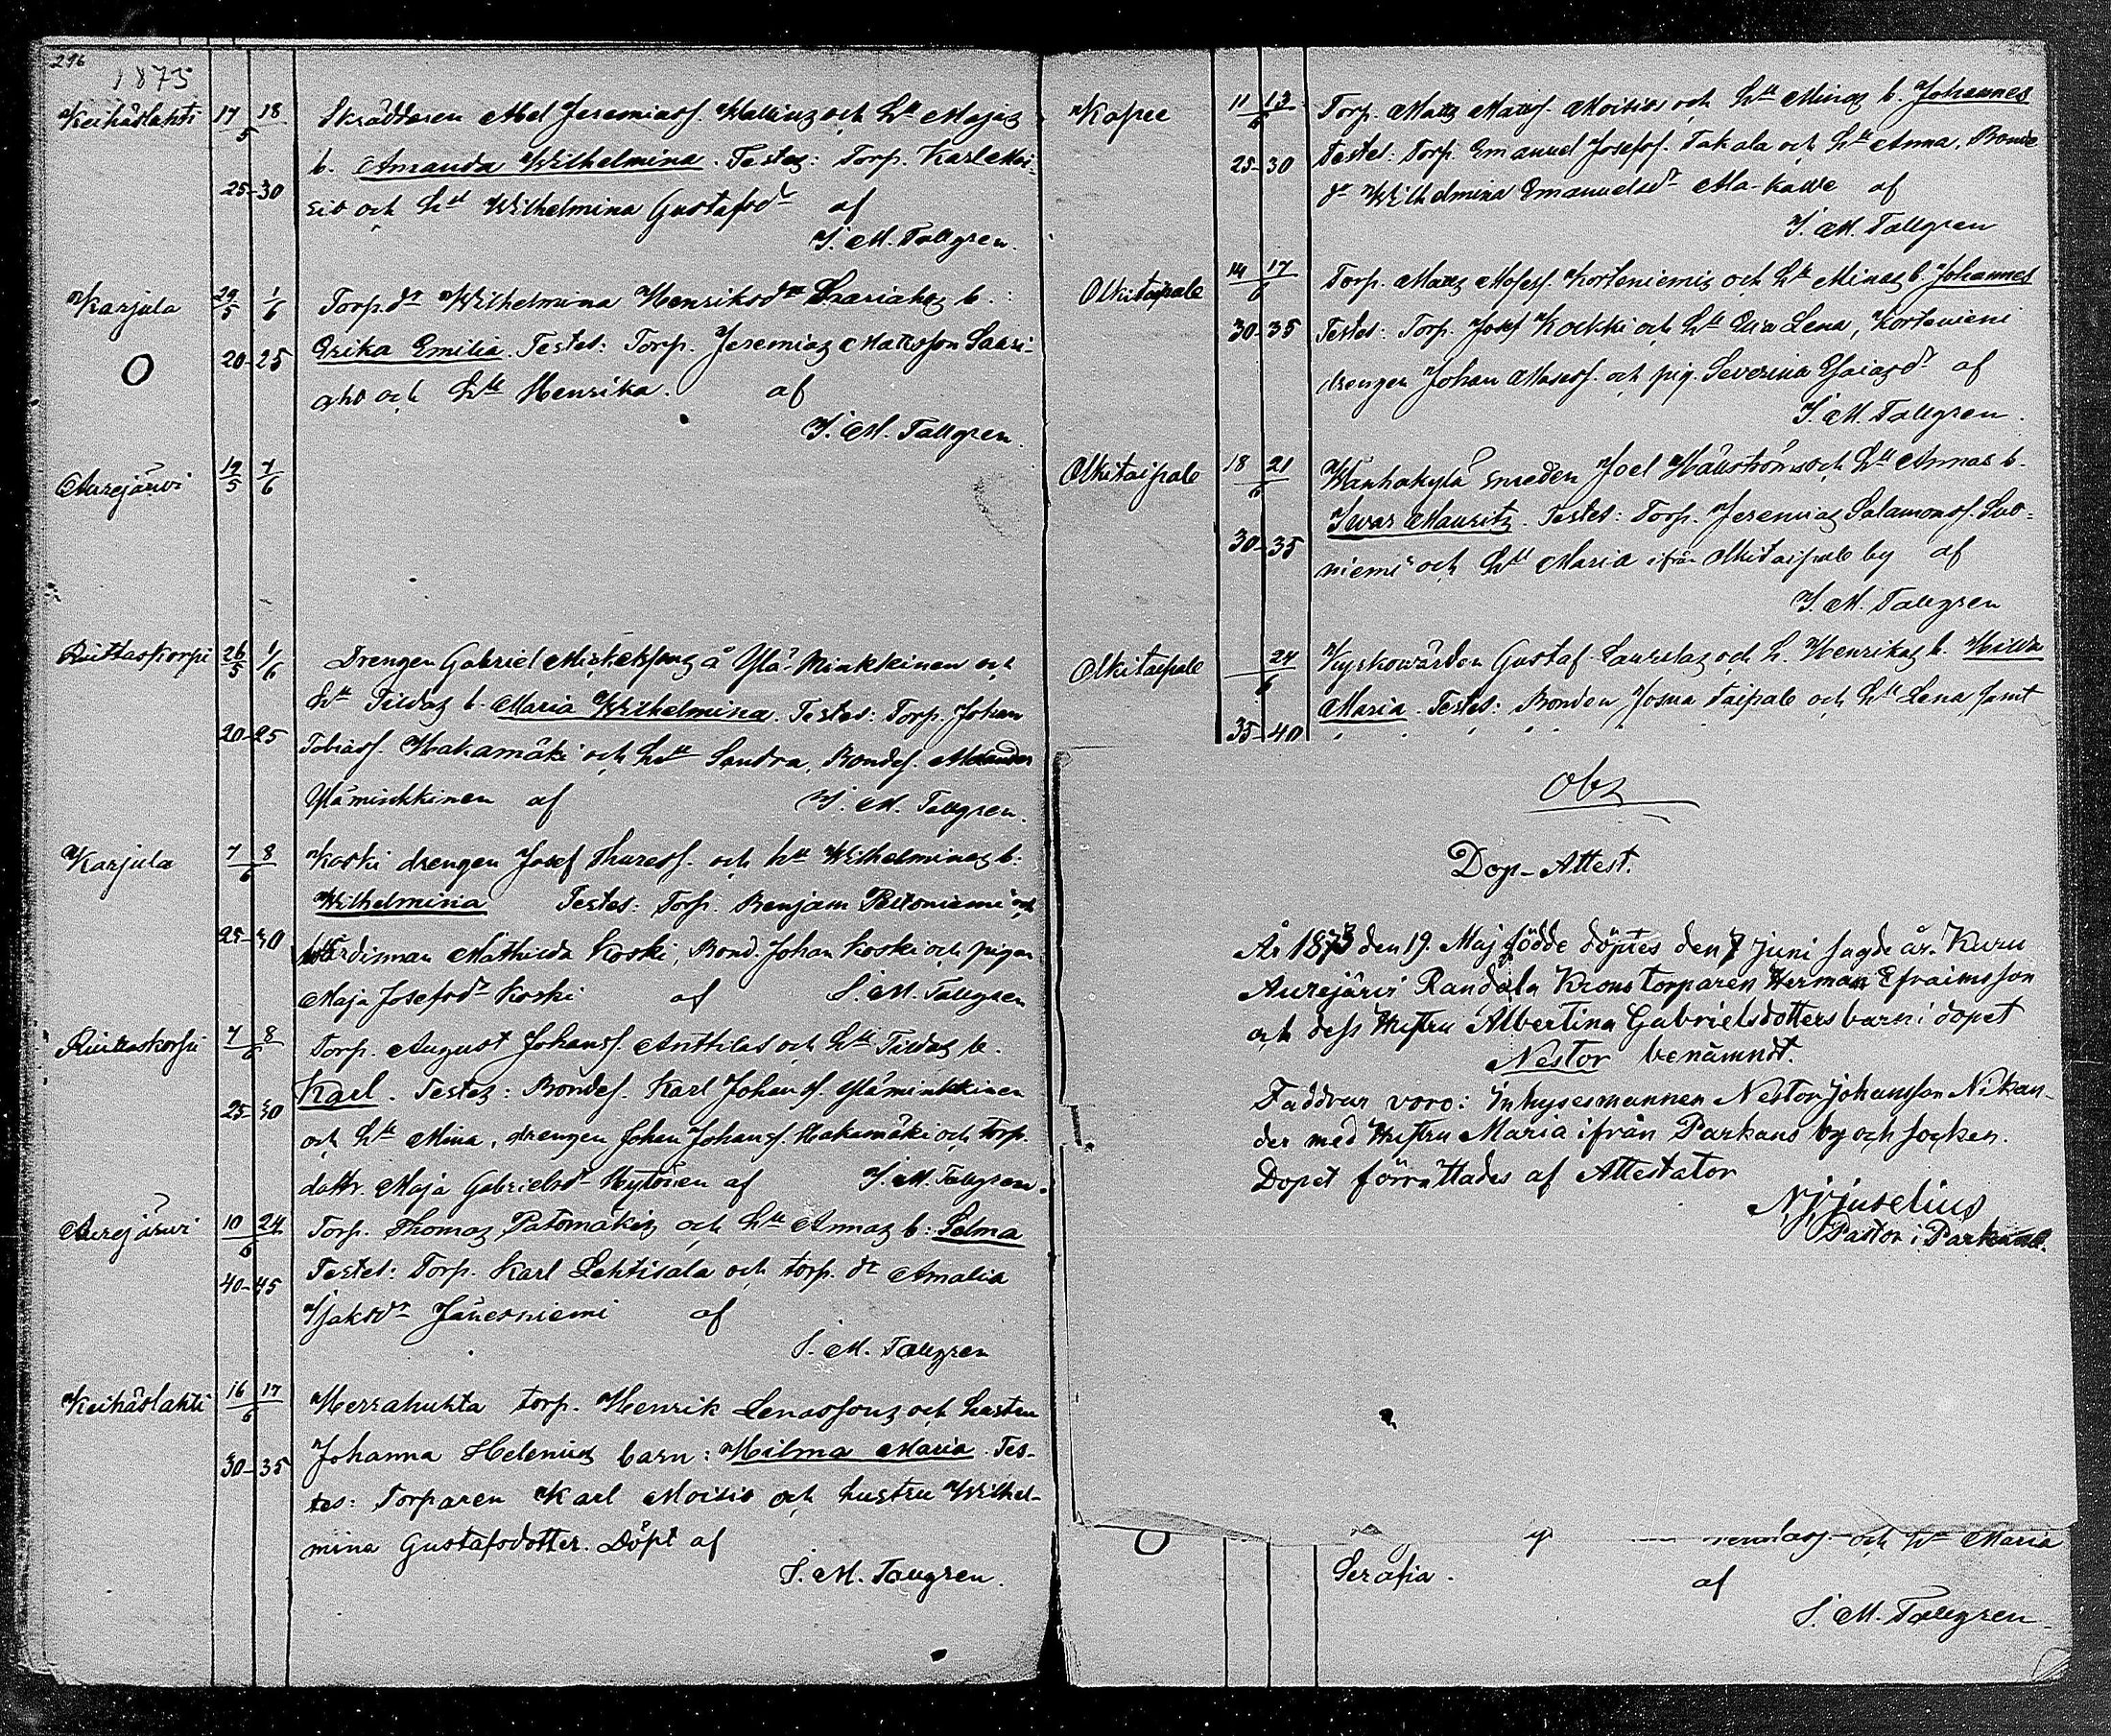 296
1873
Keihäslahti 17 18 Skräddaren Abel Jeremiass. Wallins och h:u Majas
5 b. Amanda Wilhelmina. Testes: Torp. Karl Moi-
25-30 sio och h:u Wilhelmina Gustafsdr af
S. M. Tallgren.
Karjula 29/5 1/6 Torp.dr Wilhelmina Henriksdrs b.
20-25 Erika Emilia. Testes: Torp. Jeremias Mattsson Saari-
O aho och h:u Henrika. af
S. M. Tallgren.
Aurejärvi 19/5 7/6
Riuttaskorpi 26/5 1/6 Drengen Gabriel Michelssons å Ylä-Minkkinen och
h:u Tildas b. Maria Wilhelmina. Testes: Torp. Johan
20-25 Tobiass. Hakamäki och h:u Sandra, Bondes.
Yläminkkinen af S. M. Tallgren.
Karjula 7 8 Koski drengen Josef Thuress. och h:u Wilhelminas b:
6 Wilhelmina Testes: Torp. Benjam Peltoniemi och
25-30 Mathilda Koski, Bond. Johan Koski och pigan
Maja Josefsdr Koski af S. M. Tallgren
Riuttaskorpi 7 8 Torp. August Johanss. Anttilas och h:u Tildas b.
6 Karl. Testes: Bondes. Karl Johanss. Yläminkkinen
25-30 och h:u Mina, drengen Johan Johanss. Hakamäki och torp.
dottr. Maja Gabrielsdr Hytönen af S. M. Tallgren.
Aurejärvi 10 24 Torp. Thomas Patomäkis och h:u Annas b: Selma
6 Testes: Torp. Karl Lehtisala och torp. dr Amalia
40-45 Isaksdr Jänesniemi af
S. M. Tallgren
Keihäslahti 16 17 Herrahuhta torp. Henrik Lenassons och hustru
6 Johanna Helenius barn: Hilma Maria. Tes-
30-35 tes: Torparen Karl Moisio och hustru Wilhel-
mina Gustafsdotter. Döpt af
S. M. Tallgren.
Kapee 11 13 Torp. Matts Mattss. Moisios och h:u Minas b. Johannes
6 Testes: Torp. Emanuel Josefss. Takala och h:u Anna, Bonde
25-30 dr Wilhelmina Emanuelsdr Ala-Kawe af
S. M. Tallgren
Olkitaipale 14 17 Torp. Matts Mosess. Korteniemis och h:u Minas b. Johannes
6
30 35 Testes: Torp. Josef Kockki och h:u Eva Lena, Korteniemi
drengen Johan Masess. och pig. Severina Esaiasdr af
S. M. Tallgren.
Olkitaipale 18 21 Wanhakylä smeden Joel Hällströms och h:u Annas b.
6 Iwar Mauritz. Testes: Torp. Jeremias Salamonss. Suo-
30-35 niemi och h:u Maria ifrån Olkitaipale by af
S. M. Tallgren
Olkitaipale 24 Kyrkowärden Gustaf Laurilas och h. Henrikas b. Hilda
6 Maria. Testes: Bonden Josua Taipale och h:u Lena samt
35-40
Obs
Dop-Attest.
År 1873 den 19. Maj födde döptes den 7 juni sagde år. Kuru
Aurejärvi Randala Kronotorparen Herman Efraimsson
och dess Hustru Albertina Gabrielsdotters barn i dopet
Nestor benämndt.
Faddrar voro: Inhysesmannen Nestor Johansson Nikan-
der med Hustru Maria ifrån Parkano by och socken.
Dopet förrättades af Attestator
N J Juselius
Pastor i Parkano.
och h:u Maria
Serafia. af
S. M. Tallgren